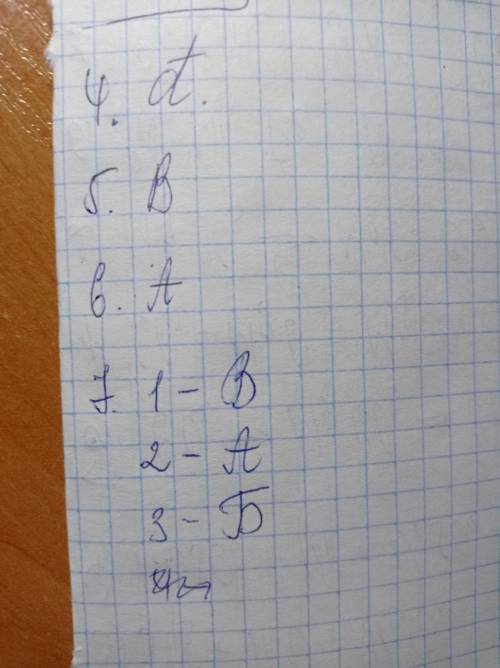 4. d.
5. В
6. А
7. 1 - В
2 - А
3 - Б